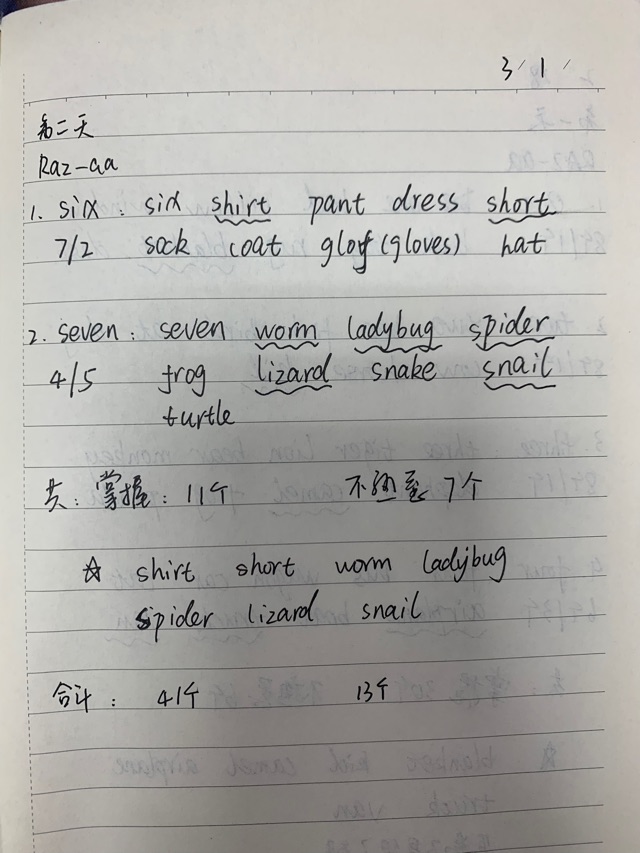 3/1/
第二天
Raz-aa
1. six: six shirt pant dress short
7/2 sock coat glof(gloves) hat
2. seven: seven worm ladybug spider
4/5 frog lizard snake snail
turtle
共: 掌握: 11个 不熟悉 7个
☆ shirt short worm ladybug
spider lizard snail
合计: 41个 13个